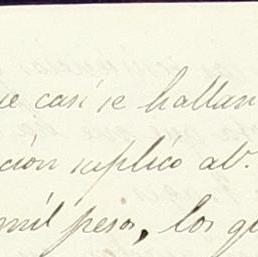 ue casi se hallan
ción suplicó al
mil pesos, los qu